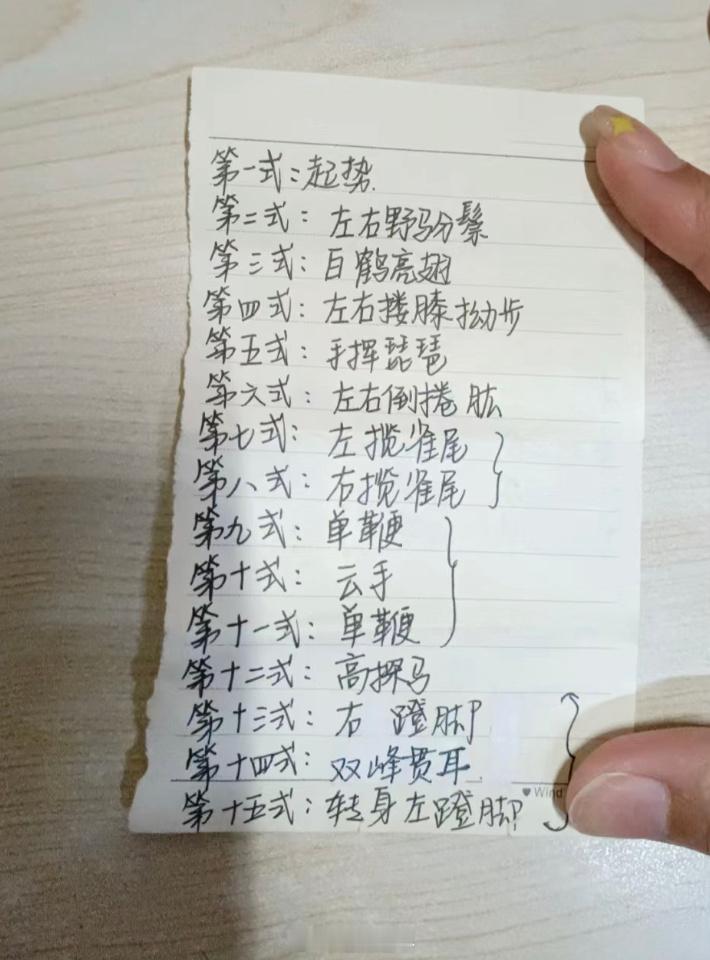 第一式：起势.
第二式：左右野马分鬃
第三式：白鹤亮翅
第四式：左右搂膝拗步
第五式：手挥琵琶
第六式：左右倒捲肱
第七式：左揽雀尾
第八式：右揽雀尾
第九式：单鞭
第十式：云手
第十一式：单鞭
第十二式：高探马
第十三式：右 蹬脚
第十四式：双峰贯耳.
♥Wind
第十五式：转身左蹬脚